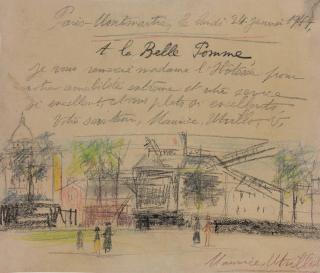 Paris-Montmartre, le lundi 24 janvier 1944,
A la Belle Pomme
Je vous remercie madame l'Hôtesse pour
votre amabilité extrême et votre service
si excellent, plats si excellents.
Votre serviteur, Maurice, Utrillo, V,
Maurice, Utrillo, V,